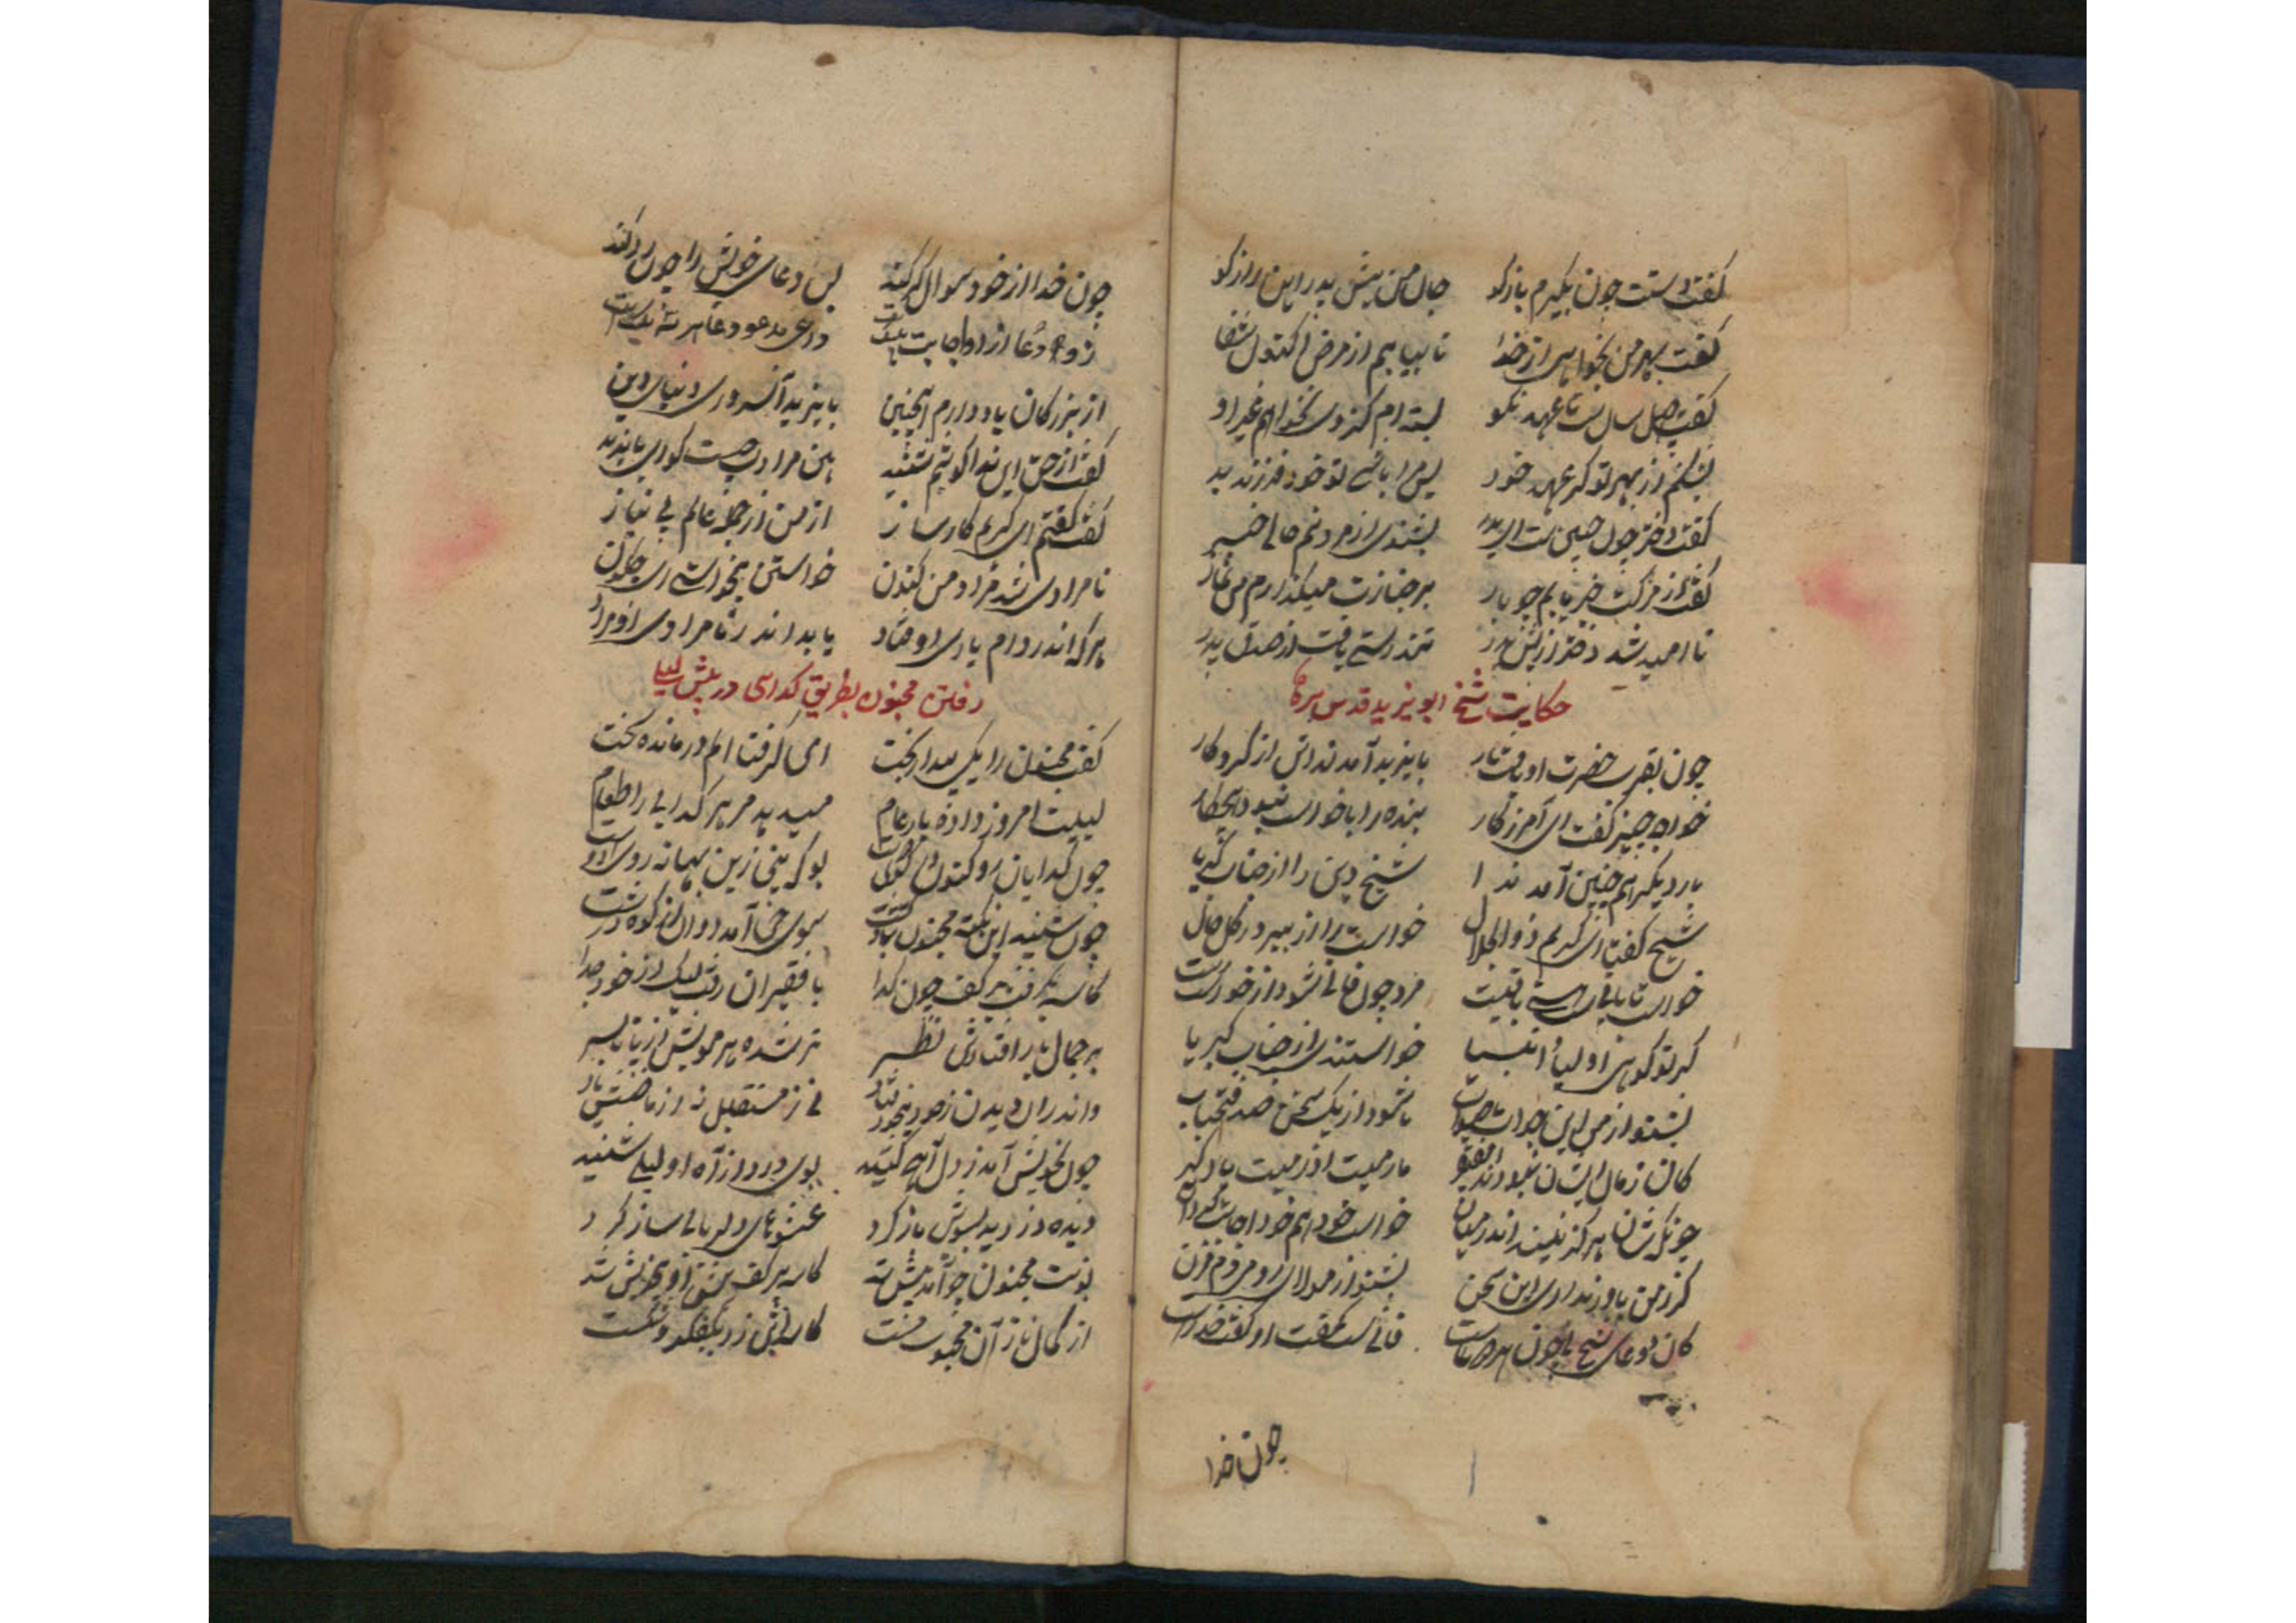 گفت دستت چون بگیرم بازگو جان من پیش پدر این راز گو
گفت بهر من بخواهی از خدا تا بیابم از مرض اکنون شفا
گفت چهل سال است تا عهد نکو بسته ام کز وی نخواهم غیر او
بشکنم از بهر تو گر عهد خود پس مرا باشی تو خود فرزند بد
گفت دختر چون چنین است ای پدر بشنوی از مردنم حالی خبر
گفت از مرگت خبر یابم چو باز بر جنازت میگذارم من نماز
نا امید شد دختر از پیش پدر تندرستی یافت از صدق پدر
حکایت شیخ ابو یزید قدس سره
چون بقرب حضرت او یافت بار بایزید آمد نداش از کردگار
خواه چیز گفت ای آمرزگار بنده را با خواست نبود هیچ کار
بار دیگر هم چنین آمد ندا شیخ دین را از جناب کبریا
شیخ گفت ای کریم ذوالجلال خواست را از من ببر در کل حال
خواست تا باقی است هستی باقیست مرد چون فانی نشود از خود نرست
گر تو گوئی اولیا و انبیا خواستندی از جناب کبریا
بشنو از من این جواب با صواب تا شود از یک سخن صد فتح باب
کان زمان ایشان نبودند ای فقیر ما رمیت اذ رمیت یاد گیر
چونکه شان هرگز نبیند اندر میان خواست خود هم خود اجابت کرد آن
گر ز من باور نداری این سخن بشنو از مولای روم در فن
کان دعای شیخ نی چون هر دعاست فانی است گفت او گفت خداست
چون خدا
چون خدا از خود سوال کد کند پس دعای خویش را چون رد کند
زو دعا از او اجابت داعی مدعو دعا هر سه یک است
از بزرگان یاد دارم اینچنین بایزید آن سرور دنیا و دین
گفت از حق این ندا گوشم شنید هین مرادت چیست گو ای بایزید
گفت گفتم ای کریم کارساز از من از جمله عالم بی نیاز
نامرادی شد مراد من کنون خواستن نخواستی ای چگون
هر که اندر دام یاری اوفتاد یابد اندر نامرادی او مراد
رفتن مجنون بطریق گدائی در پیش لیلی
گفت مجنون را یکی بیدار بخت ای گرفتار الم درمانده سخت
لیلیت امروز داده بار عام میدهد مر هر گدایی را طعام
چون گدایان رو کنون در کوی دوست بو که بینی زین بهانه روی دوست
چون شنید این نکته مجنون سوی حی آمد دوان از کوه و دشت
کاسه بگرفت بر کف چون گدا با فقیران رفت لیک از خود جدا
بر جمال یار افتادش نظر تر شده هر مویش از پا تا بسر
واندران دیدن ز خود بیخود نی ز مستقبل نه از ماضیش یاد
چون بخویش آمد ز دل آهی کشید بوی درد از آه او لیلی شنید
دیده دزدیده بسویش باز کرد عشوهای دلربائی ساز کرد
نوبت مجنون چو آمد پیش شد کاسه بر کف
از کمال ناز آن محبوب مست کاسه اش زد بفکند و شکست